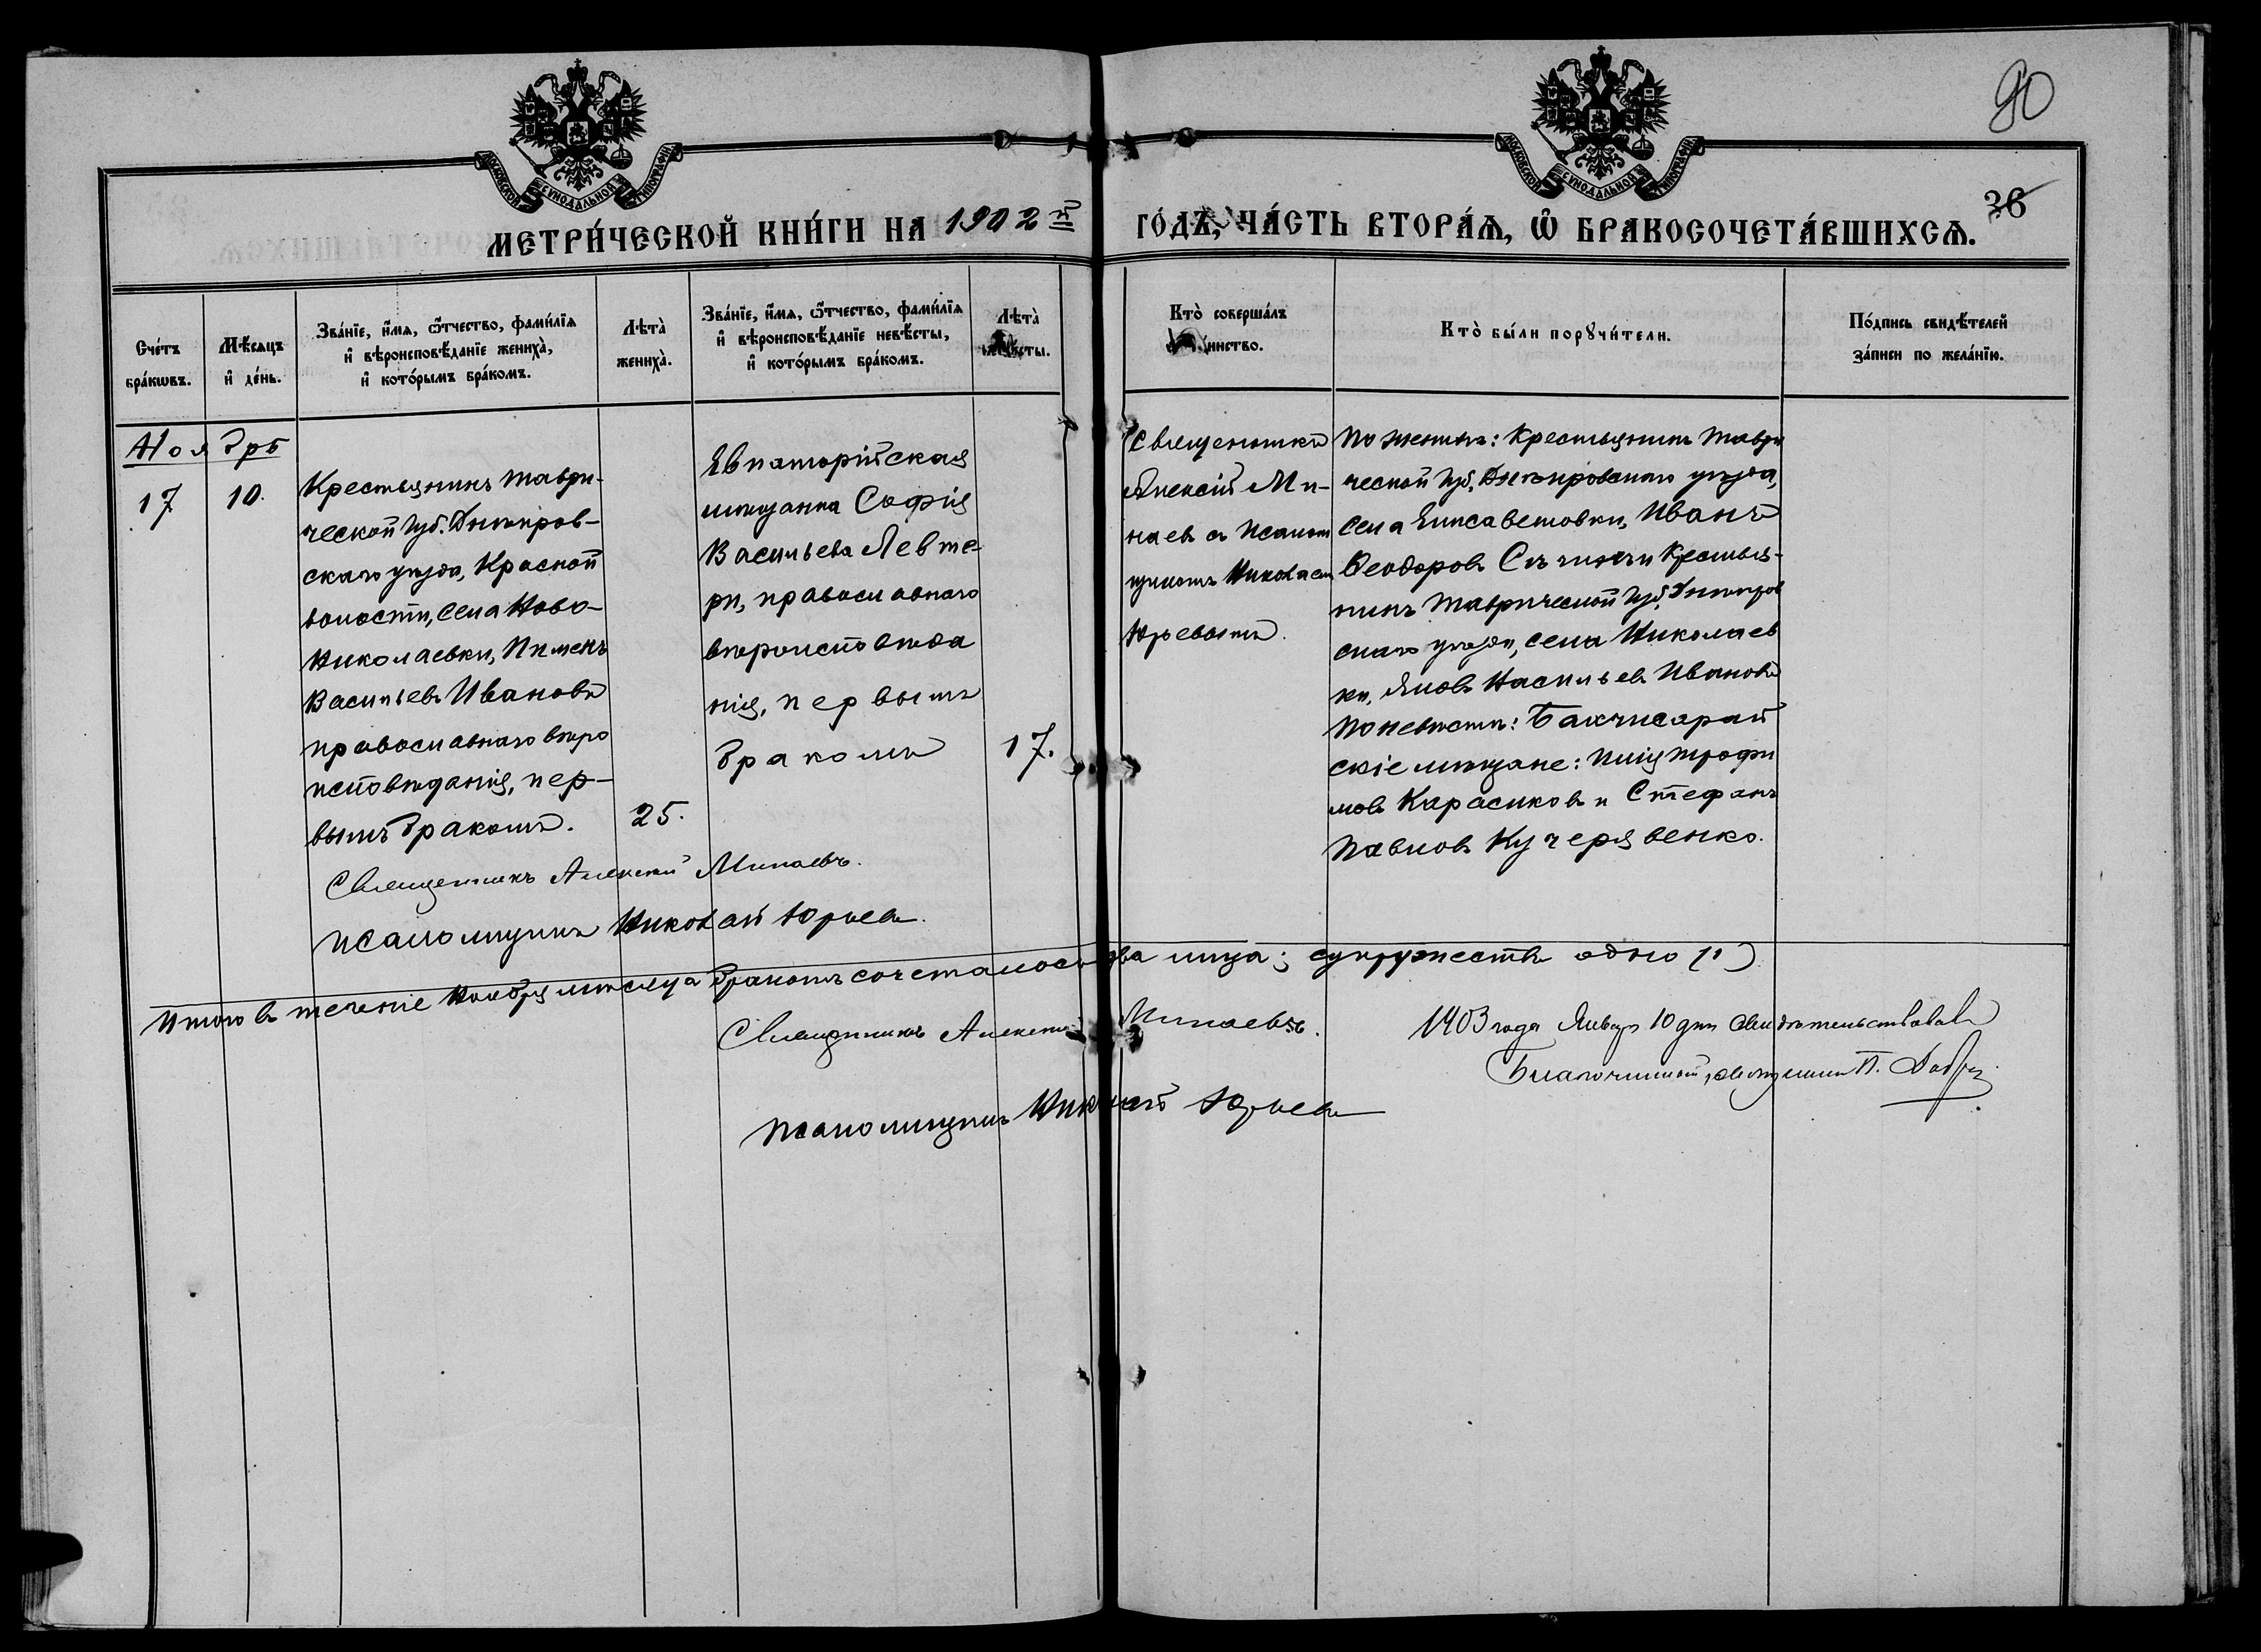 90
МОСКОВСКОЙ СѴНОДАЛЬНОЙ ТИПОГРАФІИ
МОСКОВСКОЙ СѴНОДАЛЬНОЙ ТИПОГРАФІИ
36
МЕТРИ́ЧЕСКОЙ КНИ́ГИ НА 1902й ГО́ДЪ, ЧА́СТЬ ВТОРА́Ѧ, Ѽ БРАКОСОЧЕТА́ВШИХСѦ.
Сче́тъ
бра́кѡвъ.
Мѣ́сяцъ
и҆ де́нь.
Зва́нїе, и҆́мѧ, ѻ҆́тчество, фами́лїѧ
и҆ вѣроисповѣ́данїе жениха̀,
и҆ кото́рымъ бра́комъ.
Лѣта̀
жениха̀.
Зва́нїе, и҆́мѧ, ѻ҆́тчество, фами́лїѧ
и҆ вѣроисповѣ́данїе невѣ́сты,
и҆ кото́рымъ бра́комъ.
Лѣта̀
невѣ́сты.
Кто̀ соверша́лъ
таинство.
Кто̀ бы́ли порꙋчи́тели.
По́дпись свидѣ́телей
за́писи по жела́нїю.
Ноябрь
17
10.
Крестьянинъ Таври-
ческой губ. Днѣпров-
скаго уѣзда, Красной
волости, села Ново-
николаевки, Пименъ
Васильевъ Ивановъ
православнаго вѣро
исповѣданія, пер-
вымъ бракомъ.
25.
Евпаторійская
мѣщанка Софія
Васильева Левте-
ри, православнаго
вѣроисповѣда
нія, первымъ
бракомъ
17.
Священникъ
Алексій Ми-
наевъ съ псалом
щикомъ Николаем
Юрьевымъ.
По женихѣ: Крестьянинъ Таври
ческой губ. Днѣпровскаго уѣзда,
села Елисаветовки, Иванъ
Ѳеодоровъ и Крестья-
нинъ Таврической губ. Днѣпров
скаго уѣзда, села Николаев
ки, Яковъ Васильевъ Ивановъ
По невѣстѣ: Бакчисарай
скіе мѣщане: Илія Трофи
мовъ Карасиковъ и Стефанъ
Павловъ Кучерявенко.
Священникъ Алексій Минаевъ.
псаломщикъ Николай Юрьевъ.
Итого въ теченіе Ноября мѣсяца бракомъ сочеталось два лица; супружествъ одно (1)
Священникъ Алексій Минаевъ.
псаломщикъ Николай Юрьевъ
1903 года Января 10 дня свидѣтельствовалъ
Благочинный, священникъ П.